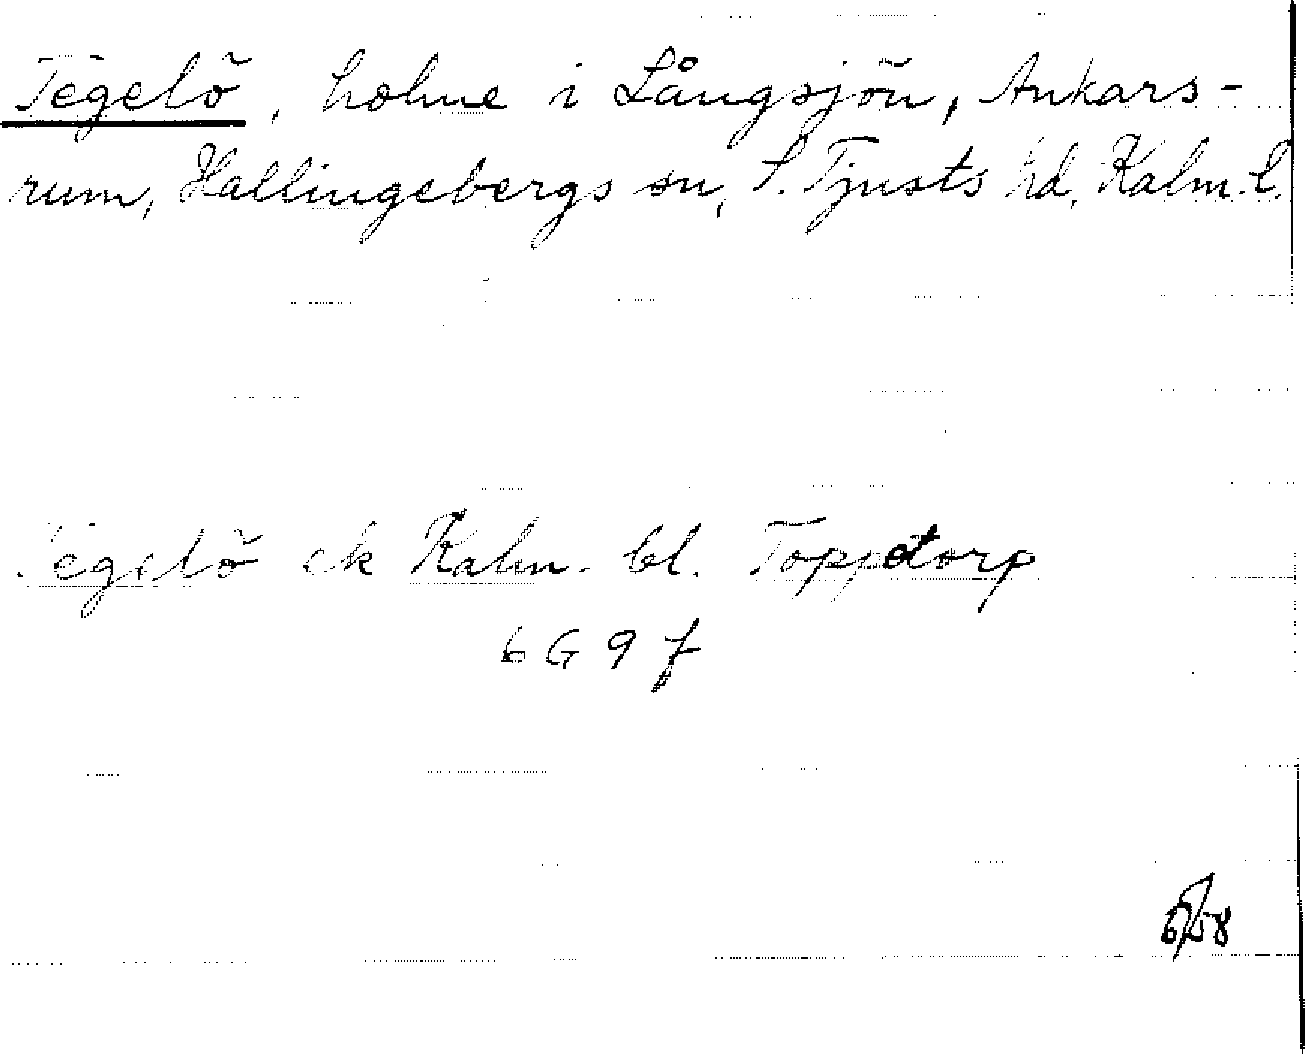 Tegelö, holme i Långsjön, Ankars-
rum, Hallingebergs sn, S. Tjusts hd, Kalm. l.
Tegelö ek Kalm. bl. Toppetorp
6G 9f